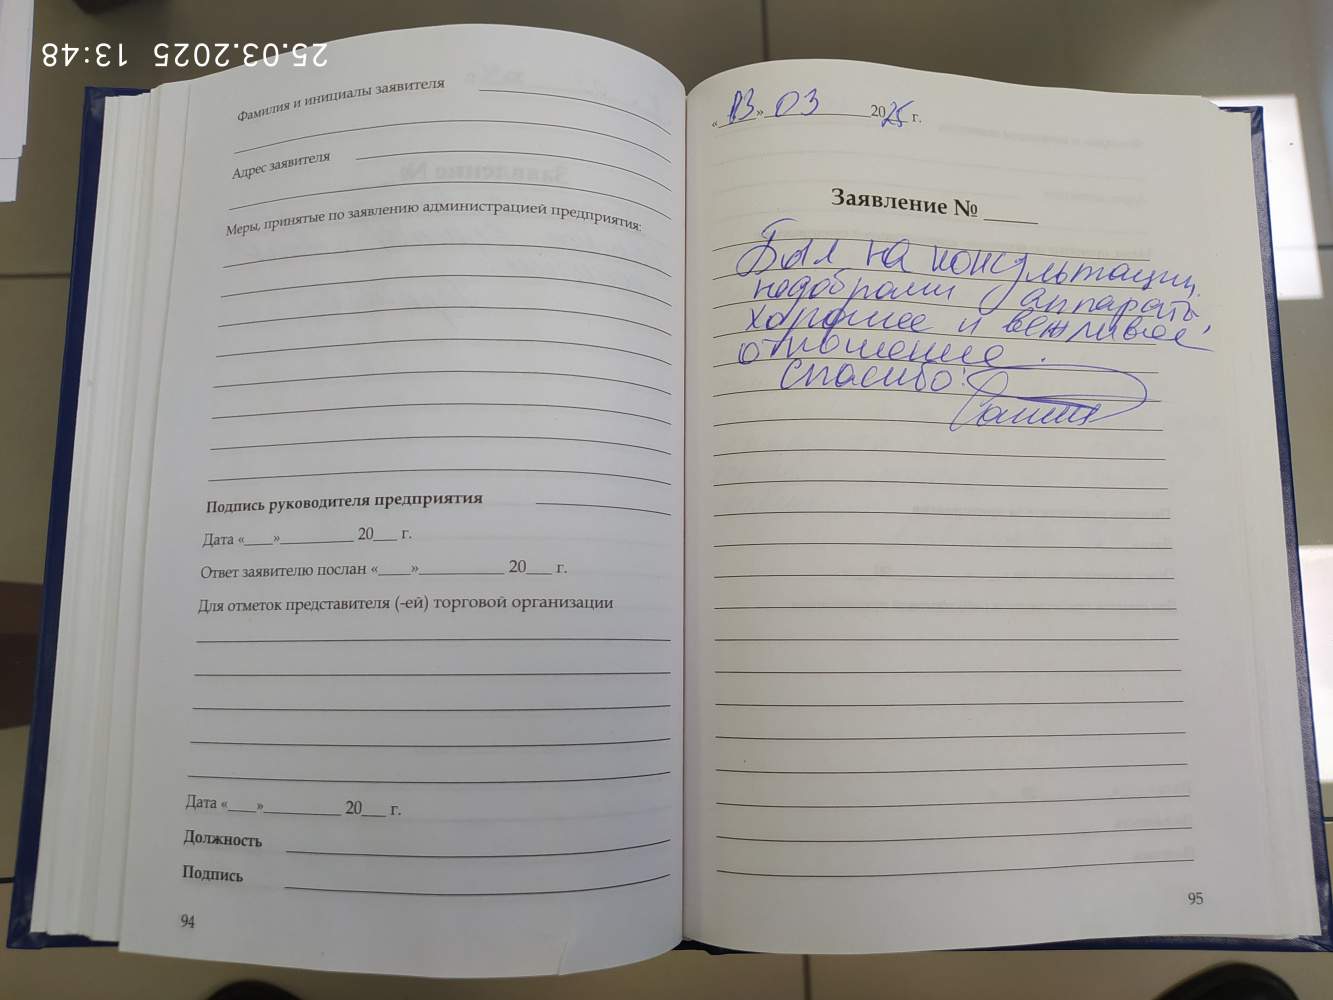 25.03.2025 13:48
Фамилия и инициалы заявителя
Адрес заявителя
Меры, принятые по заявлению администрацией предприятия:
Подпись руководителя предприятия
Дата «____»__________ 20___ г.
Ответ заявителю послан «____»___________ 20___ г.
Для отметок представителя (-ей) торговой организации
Дата «____»__________ 20___ г.
Должность
Подпись
94
« » 03 2025 г.
Заявление № ____
Был на консультации,
подобрали аппараты
хорошее и вежливое,
отношение.
Спасибо!
95